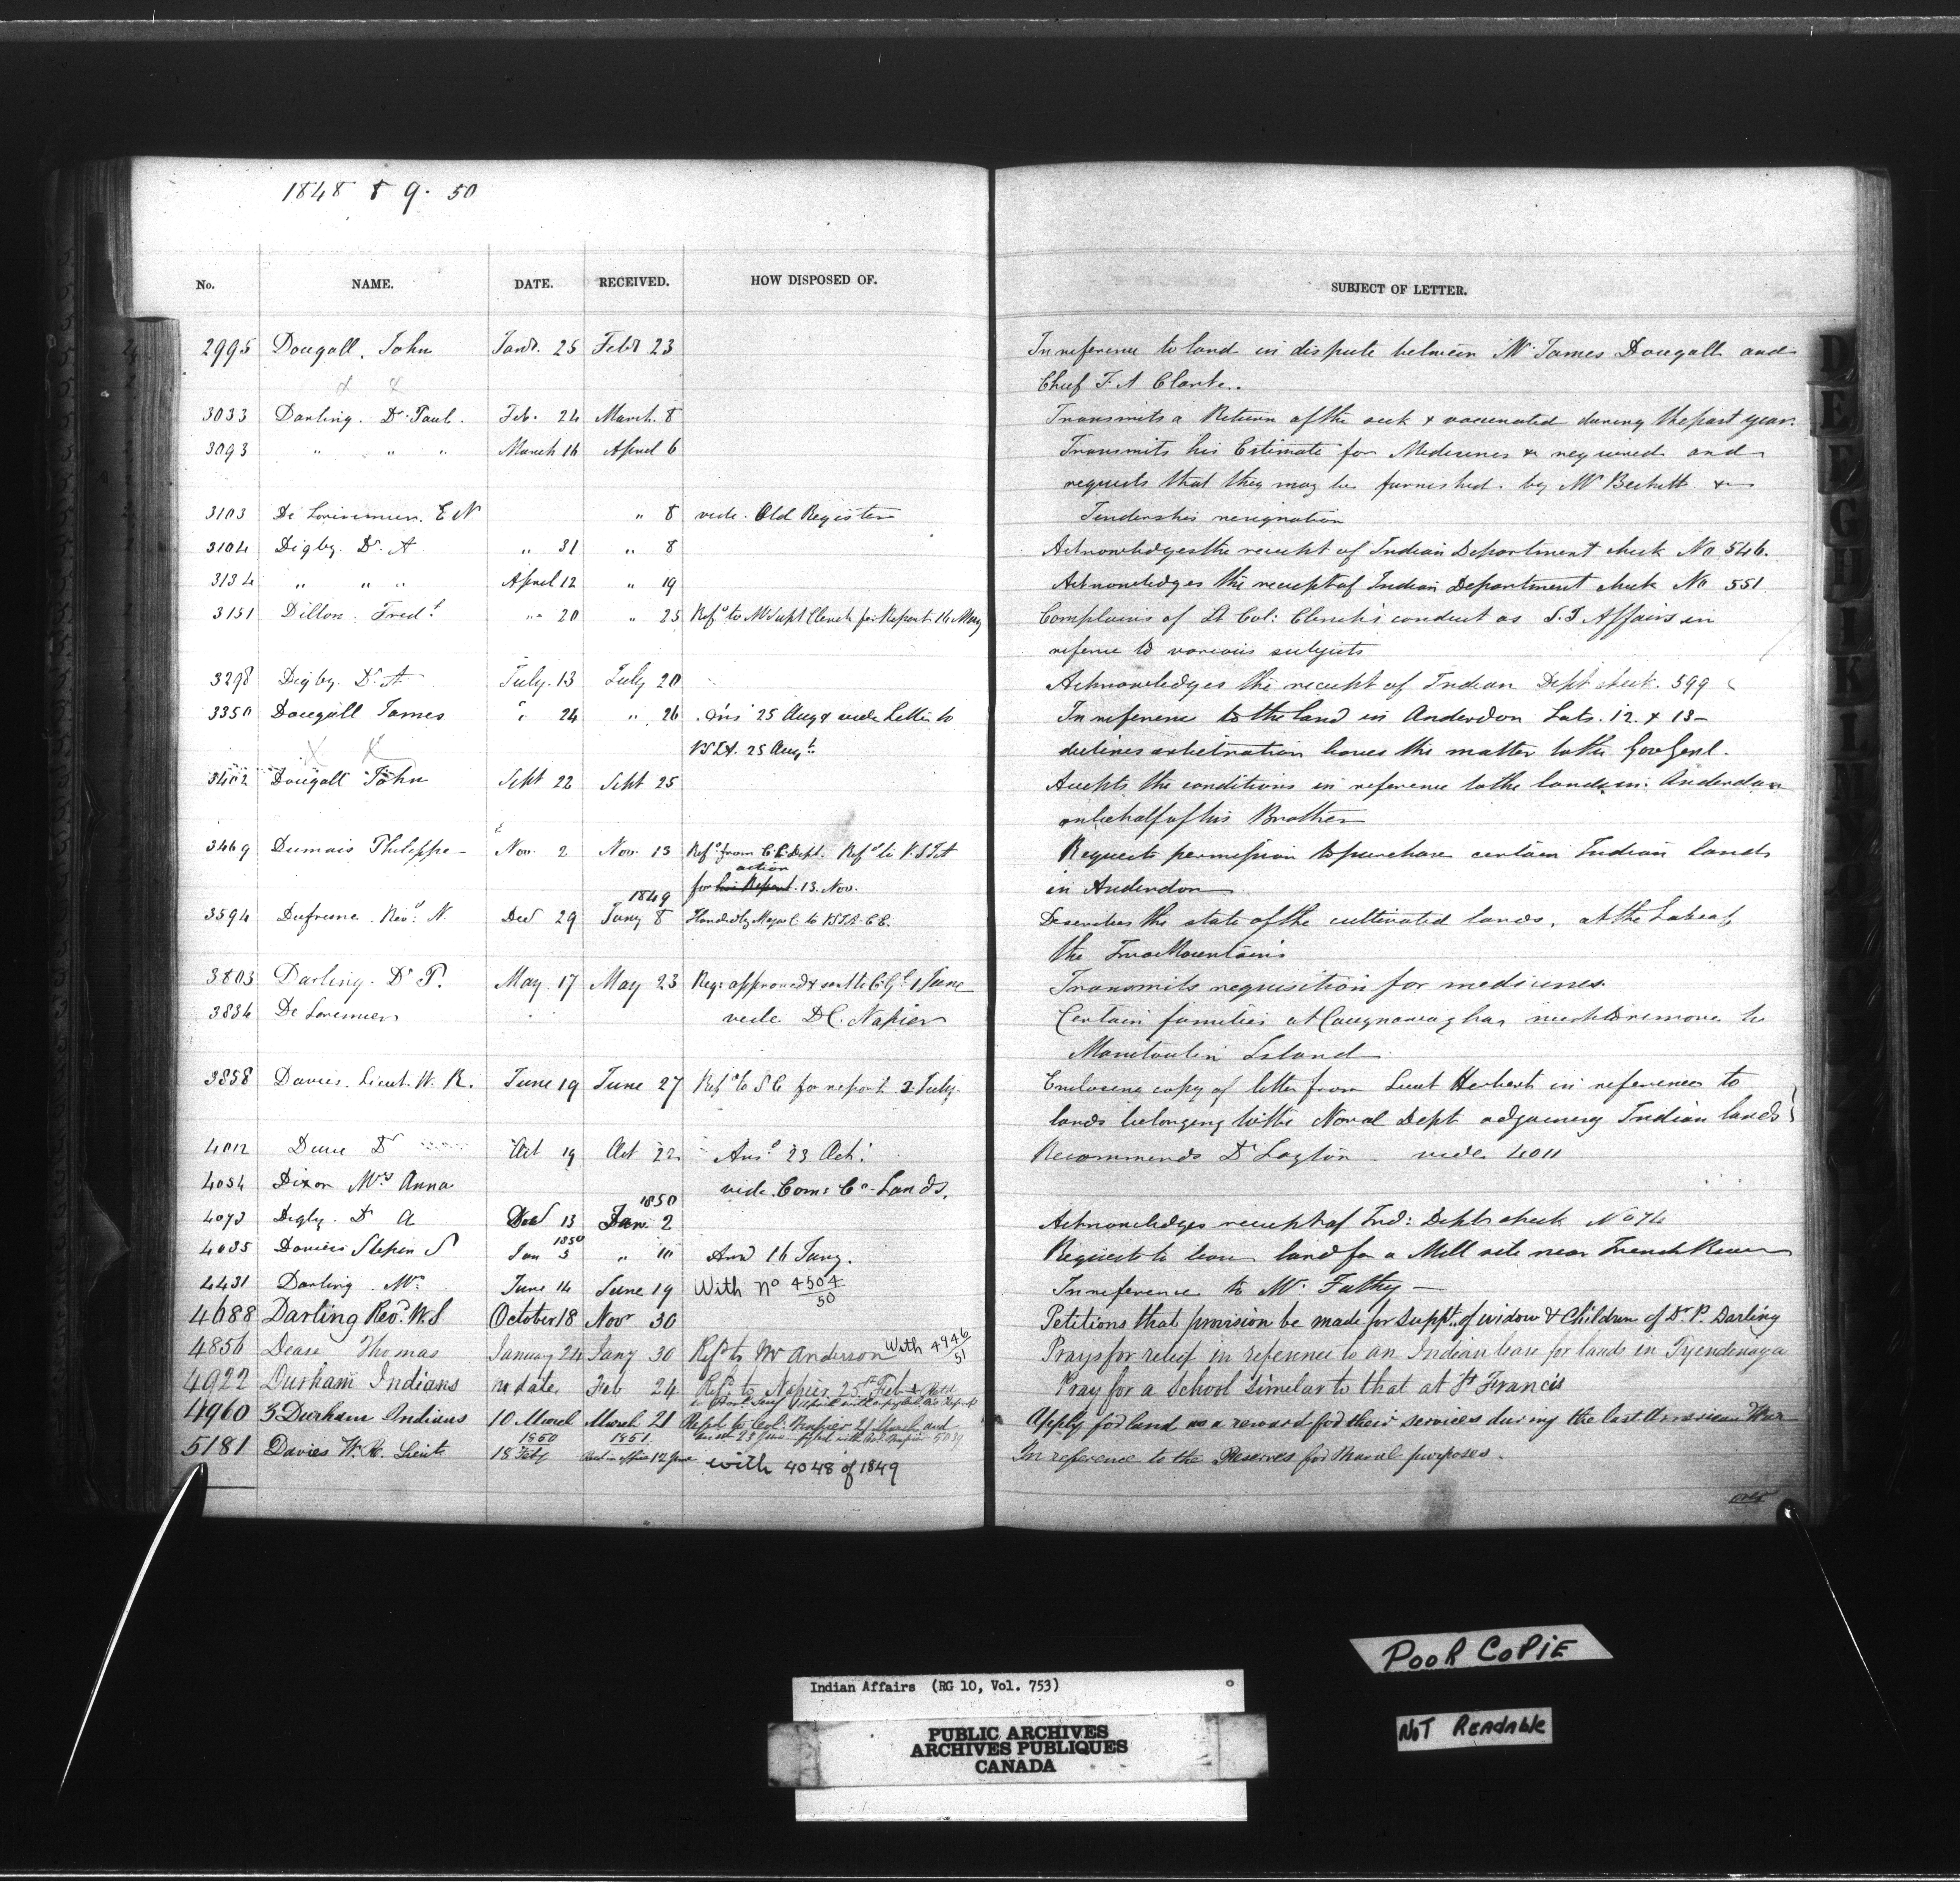 1848 & 9. 50
No. NAME. DATE. RECEIVED. HOW DISPOSED OF. SUBJECT OF LETTER.
2995 Dougall. John Jany. 25 Feby 23 In reference to land in dispute between Mr James Dougall and
Chief
3033 Darling. Dr. Paul. Feb. 24 March. 8 Transmits a Return of the sick & vaccinated during the past year.
3093 " " " March 16 April 6 Transmits his Estimate for Medicines &c required and
requests that they may be furnished by Mr Beckett &c
3103 De Lorimier. E N " 8 vide. Old Register Tenders his resignation
3104 Digby. Dr. A " 31 " 8 Acknowledges the receipt of Indian Department check No 546.
3134 " " " April 12 " 19 Acknowledges the receipt of Indian Department check No 551
3151 Dillon. Fred.k " 20 " 25 Refd to Mr Supt Clench for Report 16 May Complains of Lt Col: Clench's conduct as S. I Affairs in
referenc to various subjects
3298 Digby. Dr. A July. 13 July 20 Acknowledges the receipt of Indian Dept check. 599
3350 Dougall James " 24 " 26 Ans 25 Aug & vide Letter to In reference to the land in Anderdon Lots. 12. & 13
25 Augt. declines arbitration leaves the matter to the Gov Genl.
3402 Dougall John Sept 22 Sept 25 Accepts the conditions in reference to the lands in Anderdon
on behalf of his Brother
3469 Dumais Philippe Nov. 2 Nov. 13 Refd from C L Dept. Refd to Requests permission to purchase certain Indian lands
action
for his Report. 13. Nov. in Anderdon
1849
3594 Dufresne. Revd. N. Dec 29 Jany 8 Handed by Major C to Describes the state of the cultivated lands, at the Lake of
the Two Mountains
3803 Darling. Dr P. May 17 May 23 Reqn approved & sent to 1 June Transmits requisition for medicines.
3834 De Lorimier vide D C. Napier Certain families at Caughnawagha wish to remove to
Manitoulin Island
3858 Davies. Lieut. W. R. June 19 June 27 Refd to S C for report 2 July. Enclosing copy of letter from Lieut Herbert in reference to
lands belonging to the Naval Dept adjoining Indian lands
4012 Dr Oct 19 Oct 22 Ansd 23 Oct. Recommends Dr Layton vide 4011
4054 Dixon Mrs Anna vide. Com: Cn. Lands.
1850
4073 Digby. Dr A Dec 13 Jan. 2 Acknowledges receipt of Ind: Depts check No 74
1850
4035 Davies Stephen S Jan 5 " 10 Ansd 16 Jany. Requests to lease land for a Mill site near French River
4431 Darling Mr June 14 June 19 With No 4504/50 In reference to Mr.
4688 Darling Revd. W. S October 18 Novr 30 Petitions that provision be made for supp.t of widow & Children of Dr. P. Darling
4856 Deare Thomas January 24 Jany 30 Refd to Mr Anderson With 4946/51 Prays for relief in reference to an Indian lease for lands in Tyendenaga
4922 Durham Indians no date Feb 24 Refd. to Napier 25th Feb & Pray for a School similar to that at St Francis
4960 3 Durham Indians 10 March March 21 Refd. to Col. Napier 21 March and Apply for land as a reward for their services during the last American War
1850 1851
5181 Davies W. R. Lieut 18 Feby Recd in office 12 June with 4048 of 1849 In reference to the Reserves for Naval purposes.
over
D E F G H I K L
POOR COPIE
NOT READABLE
Indian Affairs (RG 10, Vol. 753)
PUBLIC ARCHIVES
ARCHIVES PUBLIQUES
CANADA